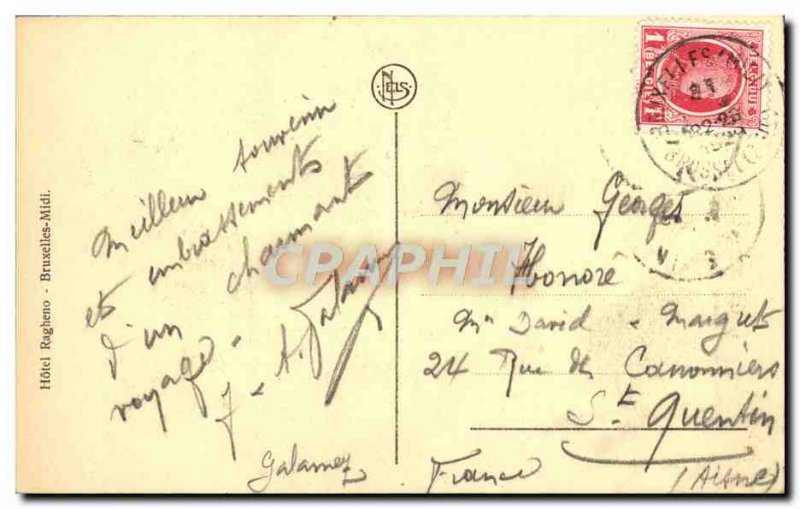 Hôtel Ragheno - Bruxelles-Midi.
NELS
Meilleur souvenir
et embrassements
d'un charmant
voyage.
J. A. Galamez
Galamez
1F
BELGIQUE
CPRAPHIL
Monsieur Georges
Honoré
Mon David - Maigret
24 Rue des Canonniers
St Quentin
(Aisne)
France